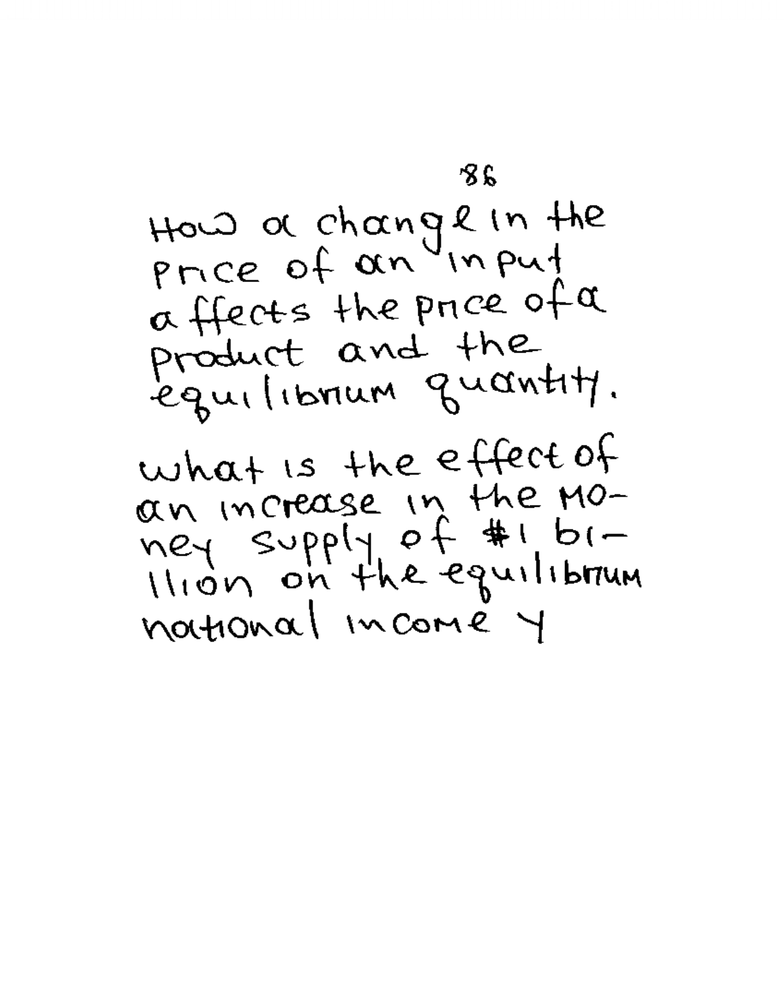 86
How a change in the
price of an input
affects the price of a
product and the
equilibrium quantity.
what is the effect of
an increase in the mo-
ney supply of $1 bi-
llion on the equilibrium
national income Y